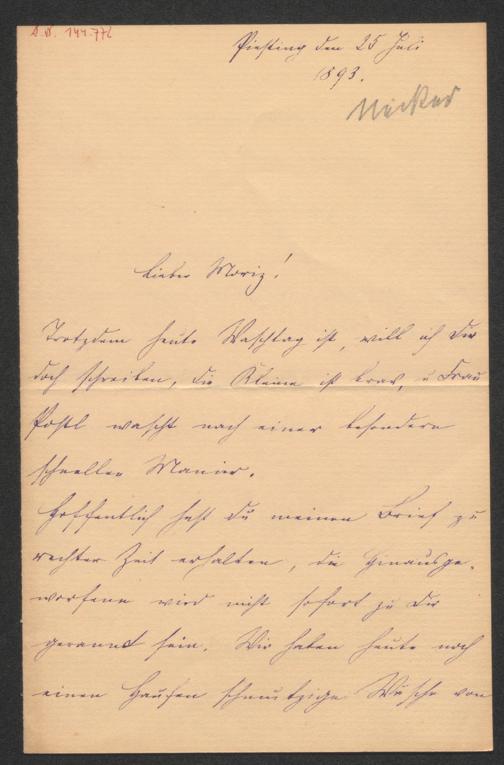 I.N. 144.776
Piesting den 25 Juli
1893.
Necker
Lieber Moriz!
Trotzdem heute Waschtag ist, will ich Dir
doch schreiben, die Kleine ist brav, u Frau
Postl wascht nach einer besondern
schnellen Manier.
Hoffentlich hast du meinen Brief zu
rechter Zeit erhalten, die Hinausge-
worfene wird nicht sofort zu Dir
gerannt sein. Wir haben heute noch
einen Haufen schmutzige Wäsche von